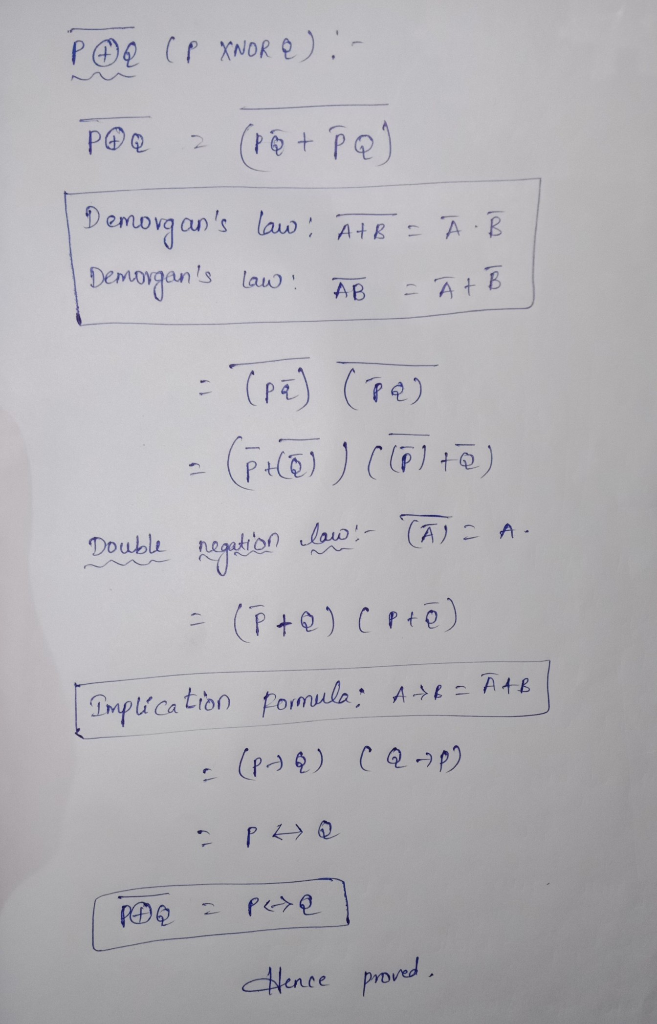 P̅⊕̅Q̅ (P XNOR Q) :-
P̅⊕̅Q̅ = \overline{(PQ̄ + P̄Q)}
Demorgan's law : \overline{A+B} = Ā · B̄
Demorgan's law : \overline{AB} = Ā + B̄
= \overline{(PQ̄)} \overline{(P̄Q)}
= (P̄ + \overline{(Q̄)}) (\overline{(P̄)} + Q̄)
Double negation law :- \overline{(Ā)} = A.
= (P̄ + Q) (P + Q̄)
Implication formula : A→B = Ā+B
= (P→Q) (Q→P)
= P ↔ Q
\overline{P⊕Q} = P↔Q
Hence proved.